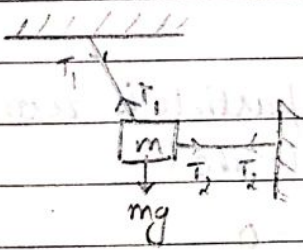 T₁
T₁
m
T₂ T₂
mg